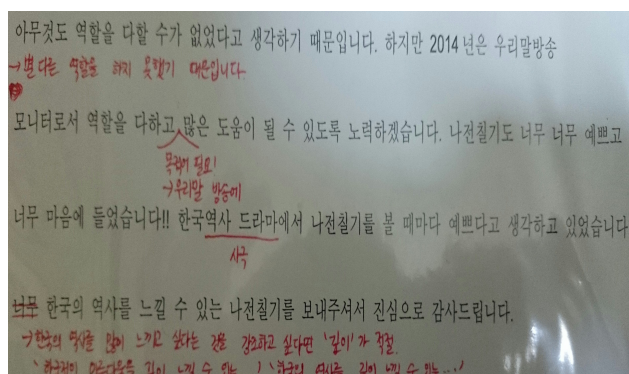 아무것도 역할을 다할 수가 없었다고 생각하기 때문입니다. 하지만 2014년은 우리말방송
→ 별다른 역할을 하지 못했기 때문입니다.
모니터로서 역할을 다하고 많은 도움이 될 수 있도록 노력하겠습니다. 나전칠기도 너무 너무 예쁘고
목적어 필요!
→ 우리말 방송에
너무 마음에 들었습니다!! 한국역사 드라마에서 나전칠기를 볼 때마다 예쁘다고 생각하고 있었습니다
사극
너무 한국의 역사를 느낄 수 있는 나전칠기를 보내주셔서 진심으로 감사드립니다.
→ 한국의 역사를 많이 느끼고 싶다는 것을 강조하고 싶다면 '깊이'가 적절.
깊이 느낄 수 있는 / 한국의 역사를 깊이 느낄 수 있는